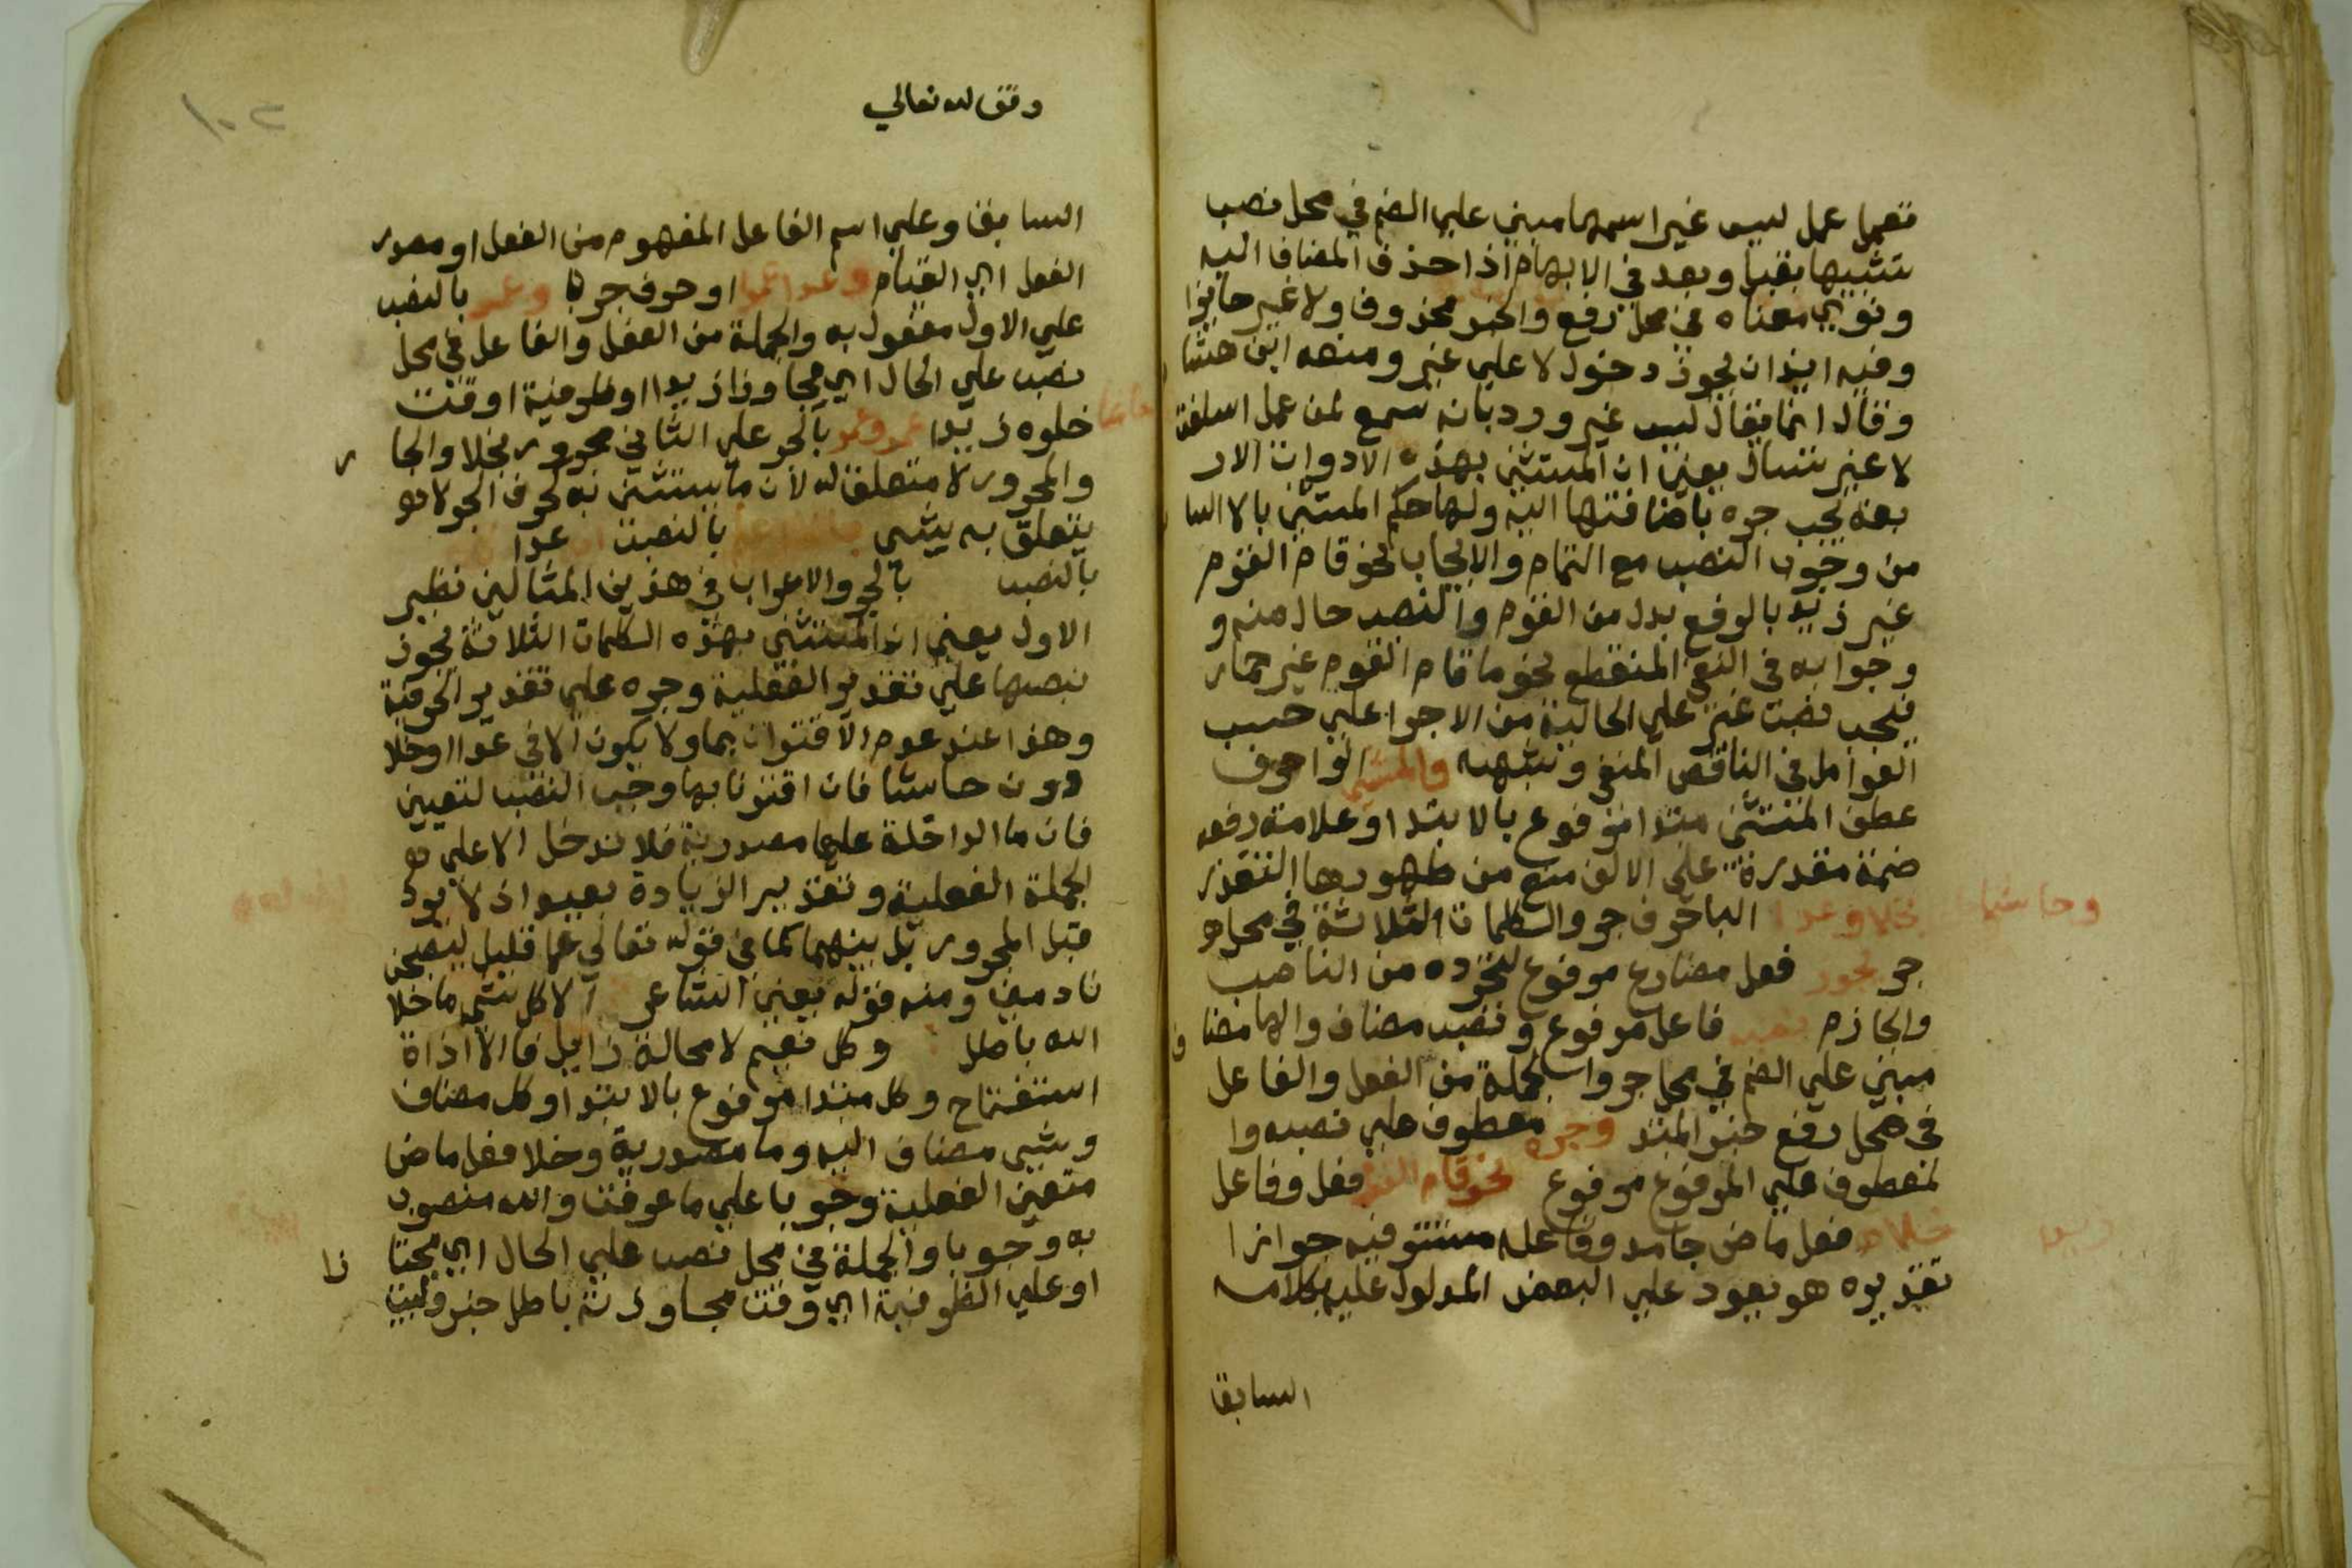 تعمل عمل ليس غير اسمها مبني علي الضم في محل نصب
تشبيها بقبل وبعد في الابهام اذا حذف المضاف اليه
ونوي معناه في محل رفع والخبر محذوف اولا غير جايزا
وفيه ايذان بجوز دخول لا علي غير ومنعه ابن هشا
وقال انما يقال ليس غير ورد بانه سمع لمن عمل اسلفت
لا غير تسال يعني ان المستثني بهذه الادوات الار
بعة يجب جره باضافتها اليه ولها حكم المستثني بالا السا
من وجوب النصب مع التمام والايجاب نحو قام القوم
غير زيد بالرفع بدل من القوم والنصب حال منه و
وجوابه في النفي المنقطع نحو ما قام القوم غير حمار
فيجب نصب غير علي الحالية من الاجرا علي حسب
العوامل في الناقص المنفي وشبهه والمستثني الواو حرف
عطف المستثني مبتدا مرفوع بالابتدا وعلامة رفعه
ضمة مقدرة علي الالف منع من ظهورها التعذر
بخلا وعدا وحاشا البا حرف جر والكلمات الثلاثة في محل
جر يجوز فعل مضارع مرفوع لتجرده من الناصب
والجازم نصبه فاعل مرفوع ونصب مضاف والها مضا ف
مبني علي الضم في محل جر والجملة من الفعل والفاعل
في محل رفع خبر المبتد وجره معطوف علي نصبه وا
لمعطوف علي المرفوع مرفوع نحو قام القوم فعل وفاعل
خلا فعل ماض جامد وفاعله مستتر فيه جوازا
تقديره هو يعود علي البعض المدلول عليه بكلامه
السابق
وقف لله تعالي
١٠٢
السابق او علي اسم الفاعل المفهوم من الفعل او مصدر
الفعل اي القيام وعدا عمرا او حرف جر وعمر بالنصب
علي الاول مفعول به والجملة من الفعل والفاعل في محل
نصب علي الحال اي مجاوزا زيدا او ظرفية او قت
خلوه زيدا بالجر علي الثاني مجرور بخلا والجا ر
والمجرور لا متعلق له لان ما يستثني به كحرف الجر لا
يتعلق به بشي بالنصب عدا
بالنصب بالجر والاعراب في هذين المثالين نظير
الاول يعني ان المستثني بهذه الكلمات الثلاثة يجوز
نصبها علي تقدير الفعلية وجره علي تقدير الحرفية
وهذا عند عدم الاقتران بما ولا يكون الا في عدا وخلا
دون حاشا فان اقترنا بها وجب النصب لتعيين
فان ما الداخلة عليها مصدرية فلا تدخل الا علي
الجملة الفعلية وتقدير الزيادة بعيد اذ لا يزد
قبل المجرور بل بينهما كما في قوله تعالي عما قليل ليصبحن
نادمين ومنه قوله يعني الشاعر الا كل شي ما خلا
الله باطل وكل نعيم لا محالة زايل فالا اداة
استفتاح وكل مبتدا مرفوع بالابتدا وكل مضاف
وشي مضاف اليه وما مصدرية وخلا فعل ماض
متعين الفعلية وجوبا علي ما عرفت والله منصوب
به وجوبا والجملة في محل نصب علي الحال اي مجتا زا
او علي الظرفية اي وقت مجاوزته باطل خبر وليت